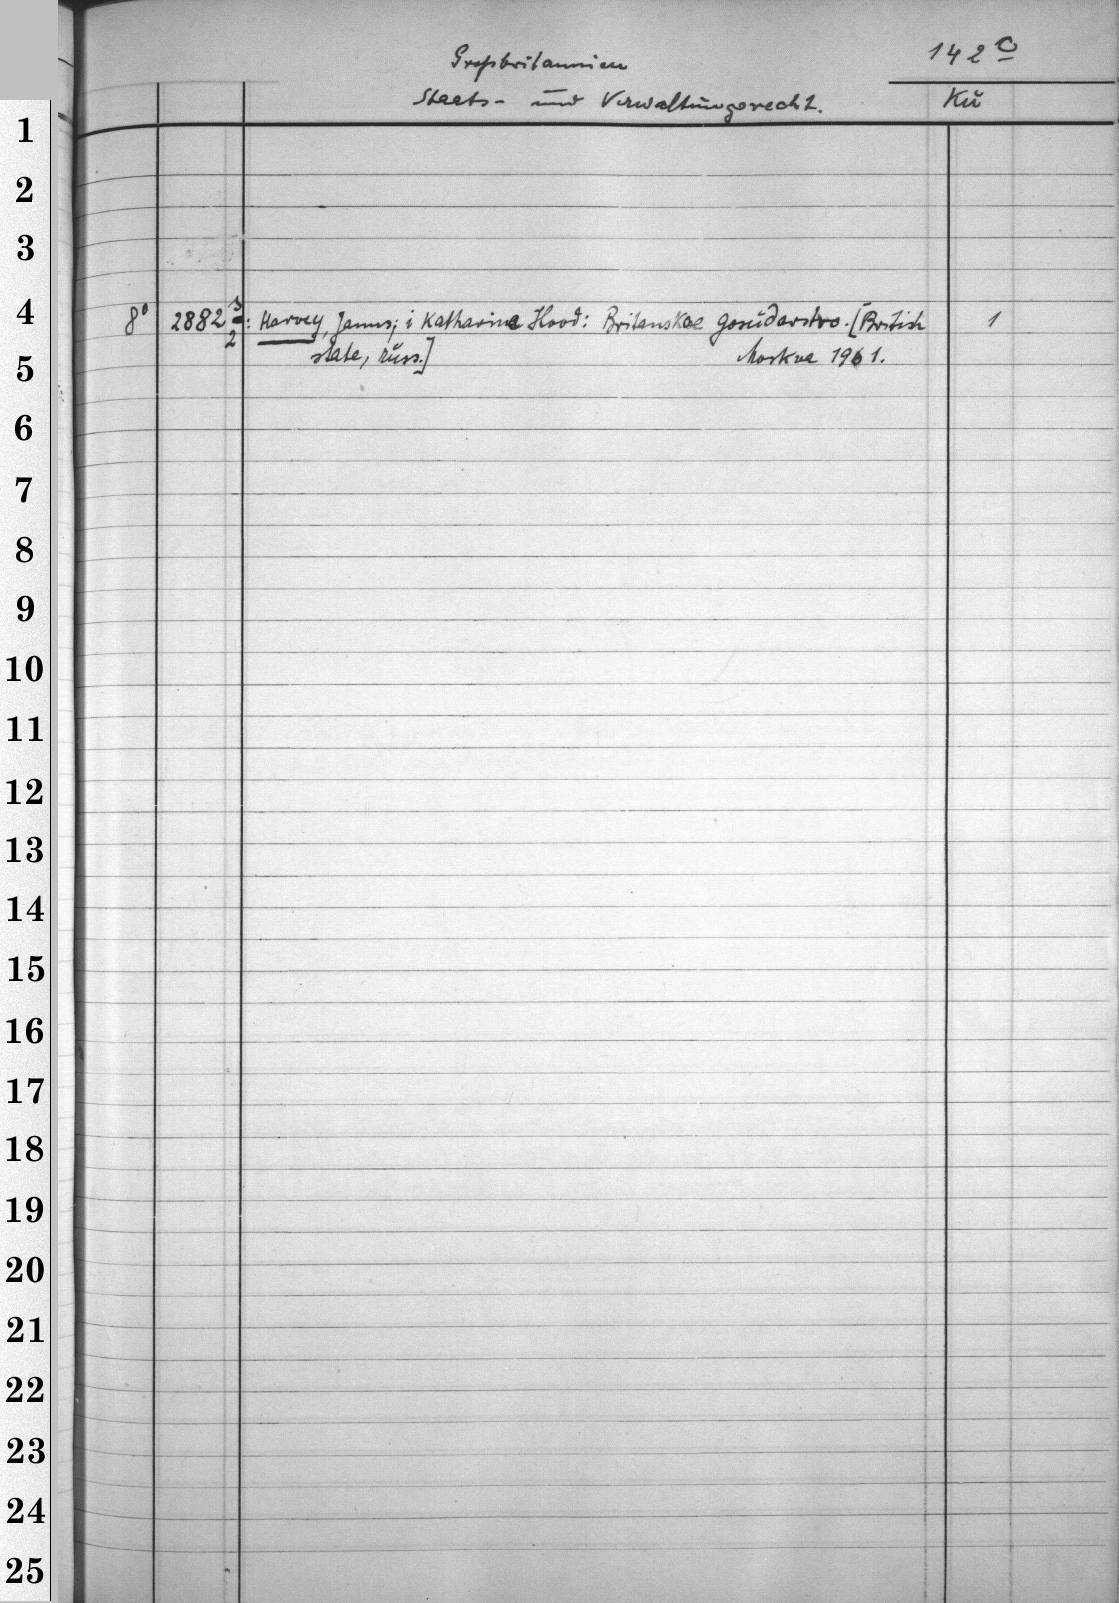 142 c
Großbritannien
Staats- und Verwaltungsrecht.
Ku
1
2
3
4
8° 2882 : Harvey, James; i Katharine Hood: Britanskoe gosudarstvo. [British 1
state, russ.] Moskva 1961.
5
6
7
8
9
10
11
12
13
14
15
16
17
18
19
20
21
22
23
24
25